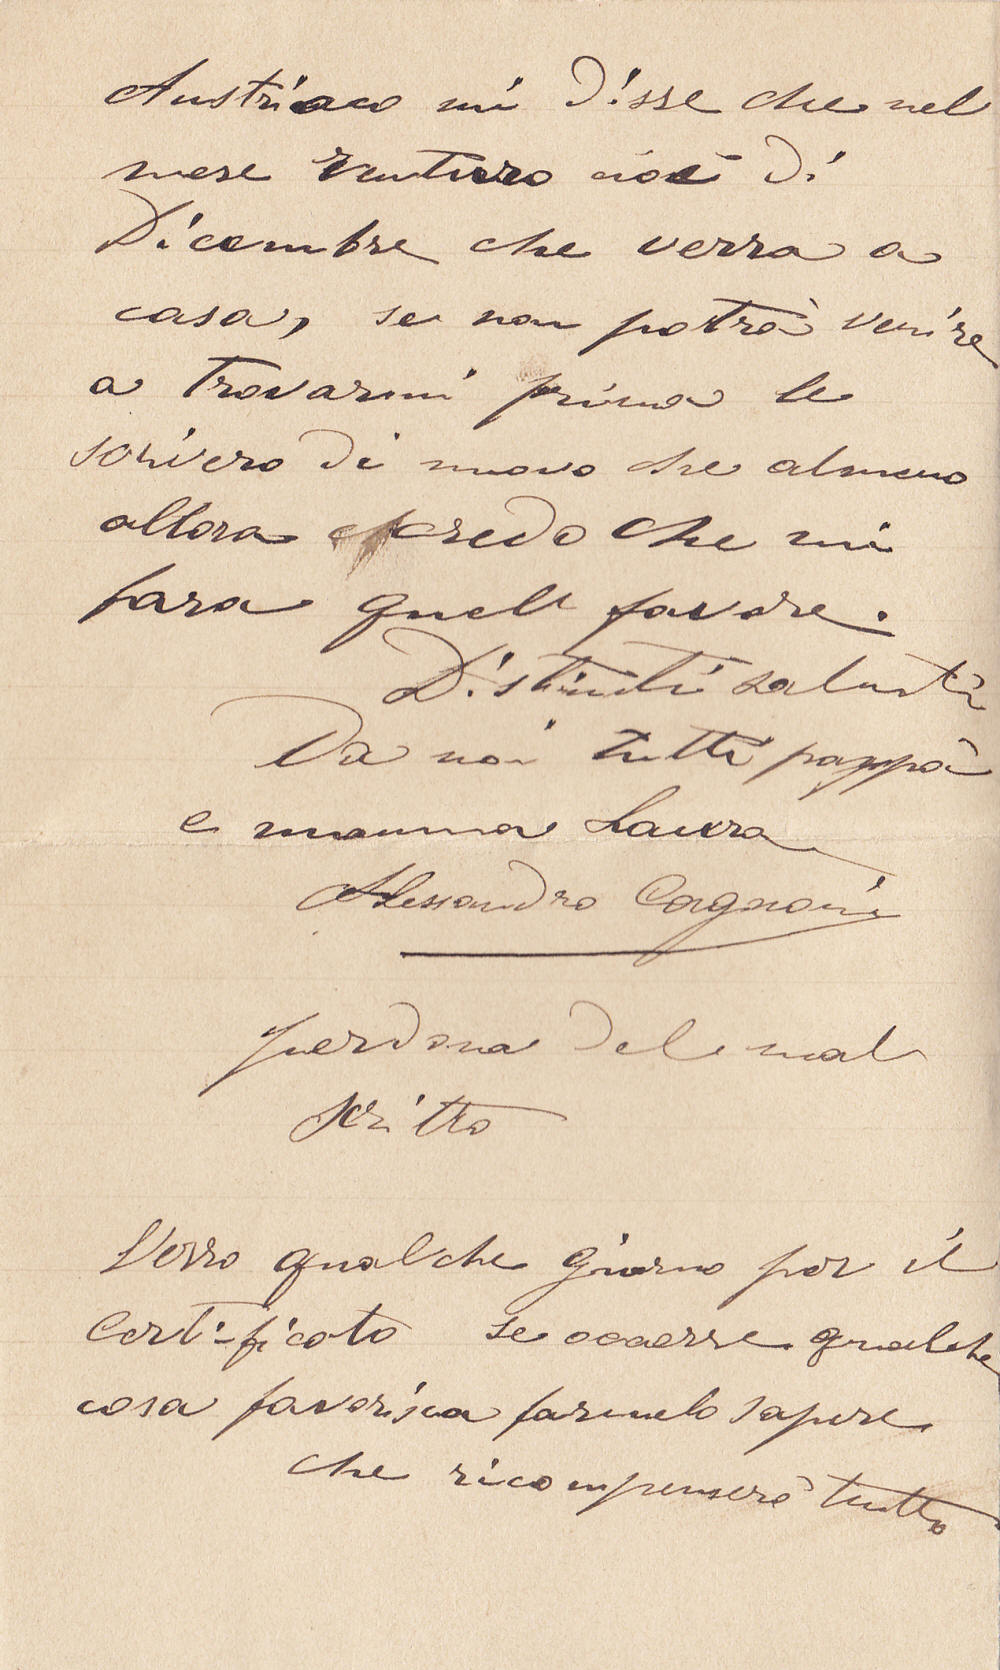 Austriaco mi disse che nel
mese venturo cioè di
Dicembre che verra a
casa, se non potrà venire
a trovarmi prima le
scrivero di nuovo che almeno
allora credo che mi
fara quell favore.
Distinti saluti
Da noi tutti pappà
e mamma Laura
Alessandro Cagnoni
perdona del mal
scritto
Verro qualche giorno per il
Certificato se occorre qualche
cosa favorisca farmelo sapere
che ricompenserò tutto